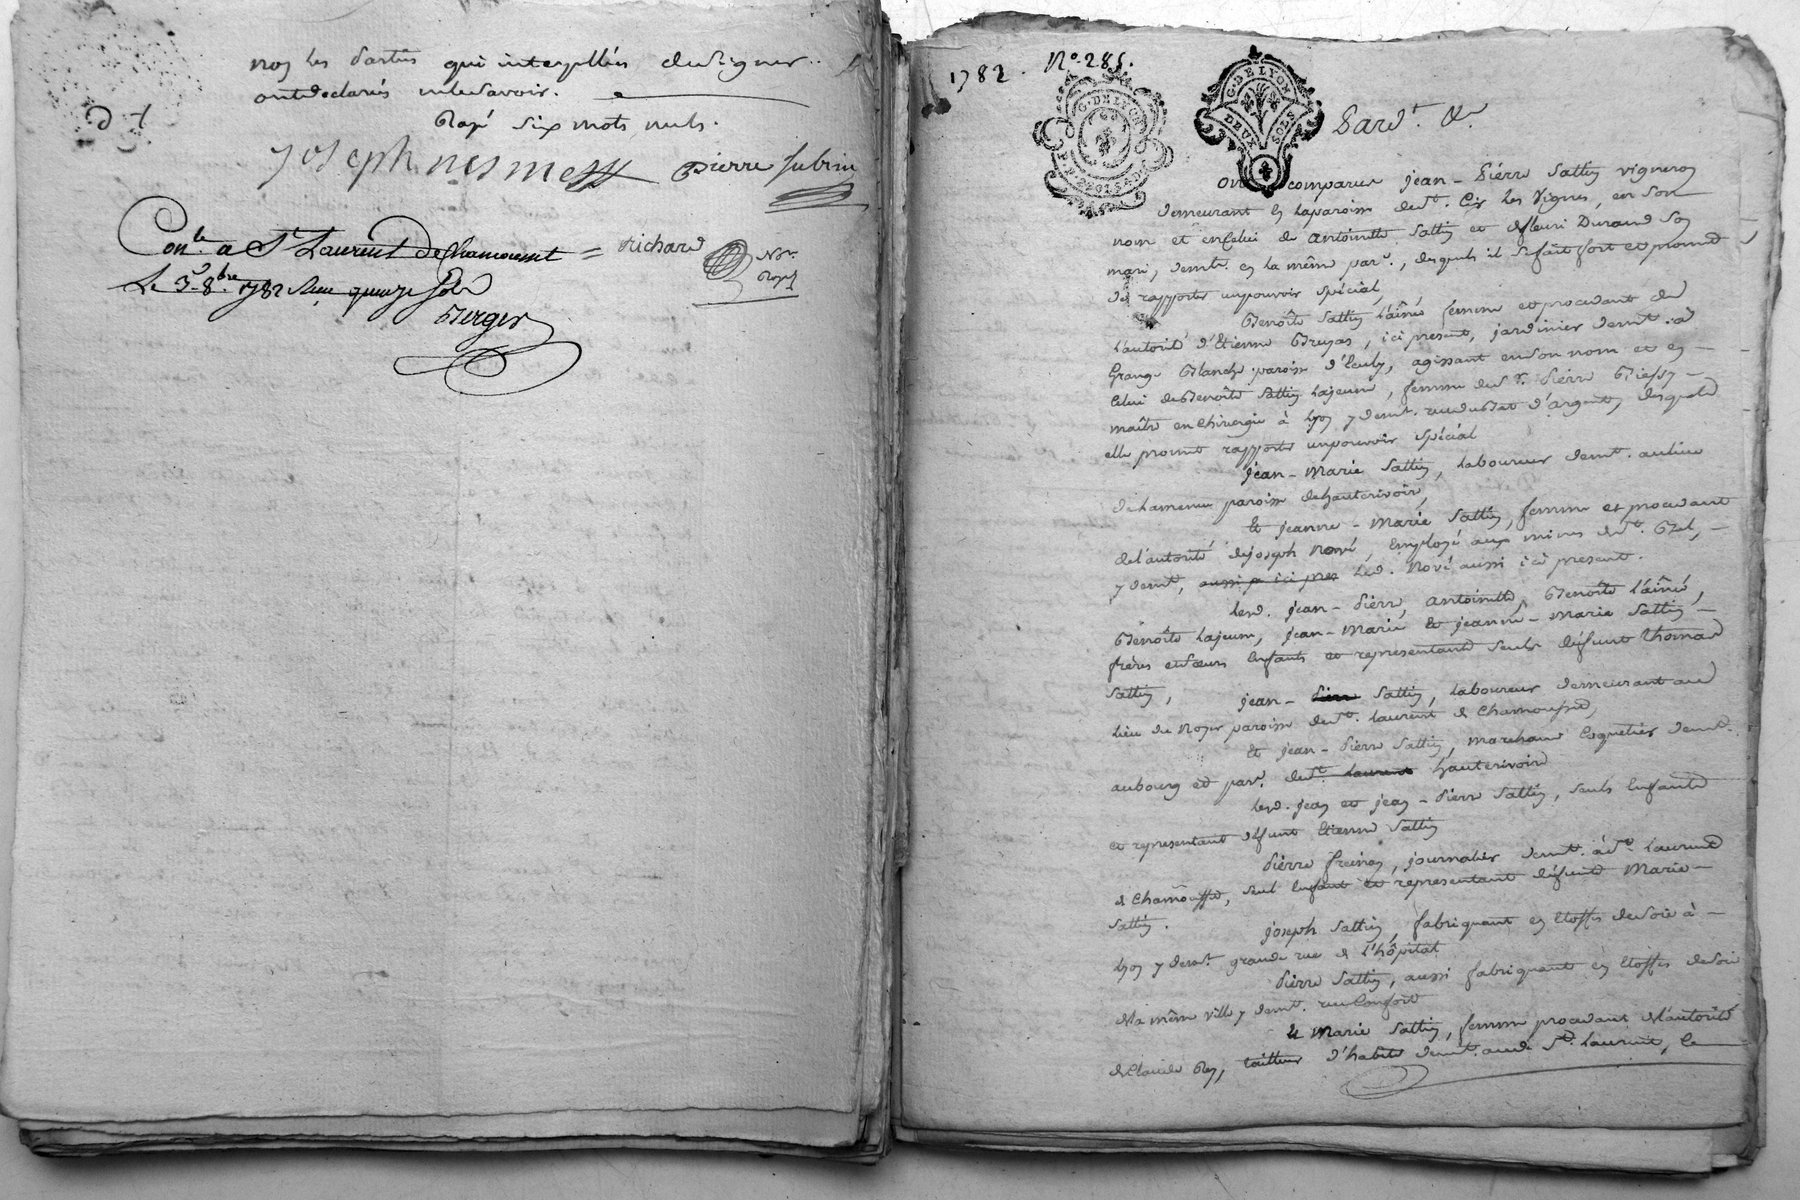 non les parties qui interpellées de signer
ont déclarés ne le savoir.
Rayé six mots nuls.
joseph nesme Pierre Subrin
Con.lé a St Laurent de Chamousset = richard
Le 3 8bre 1782 Reçu quinze sols
Berger
1782. No. 285.
G. DE LYON
G. DE LYON
DEUX SOLS
Pard.t &.
Ont comparus jean-Pierre Sattin vigneron
demeurant en la paroisse de St. Cir les Vignes, en son
nom et en celui de antoinette Sattin et fleuri Durand son
mari, demt. en la même par.e, desquels il se fait fort et promet
de rapporter un pouvoir spécial,
Benoîte Sattin l'aînée femme et procedant de
l'autorité d'Etienne Bruyas, ici présent, jardinier demt. à
Grange Blanche paroisse d'Ecully, agissant en son nom et en
celui de Benoîte Sattin la jeune, femme de Sr. Pierre
maître en chirurgie à Lyon y demt. rue du Bât d'argent, desquels
elle promet rapporter un pouvoir spécial
jean-Marie Sattin, laboureur demt. au lieu
de paroisse de hauterivoire,
Et jeanne-Marie Sattin, femme et procedant
de l'autorité de joseph Noré, Employé aux mines de St. Bel,
y demt, aussi ici pres led. Noré aussi ici présent.
lesd. jean-Pierre, antoinette, Benoîte l'aînée,
Benoîte la jeune, jean-Marie Et jeanne-Marie Sattin
frères et sœurs Enfants et representant seuls défunt thomas
Sattin, jean-Pierre Sattin, laboureur demeurant au
lieu du Noyer paroisse de St. laurent de Chamousset,
Et jean-Pierre Sattin, marchand Coquetier demt.
au bourg et par.e de St. laurent hauterivoire
lesd. jean et jean-Pierre Sattin, seuls Enfants
et representant défunt Etienne Sattin
Pierre freinon, journalier demt. à St. laurent
de Chamousset, seul Enfant et representant défunte Marie
Sattin. joseph Sattin, fabriquant en Etoffes de soie à
Lyon y demt. grande rue de l'hôpital
Pierre Sattin, aussi fabriquant en Etoffes de soie
de la même ville y demt. rue Confort
Et Marie Sattin, femme procedant de l'autorité
de Claude Rey, tailleur d'habits demt. aud. St. laurent, le